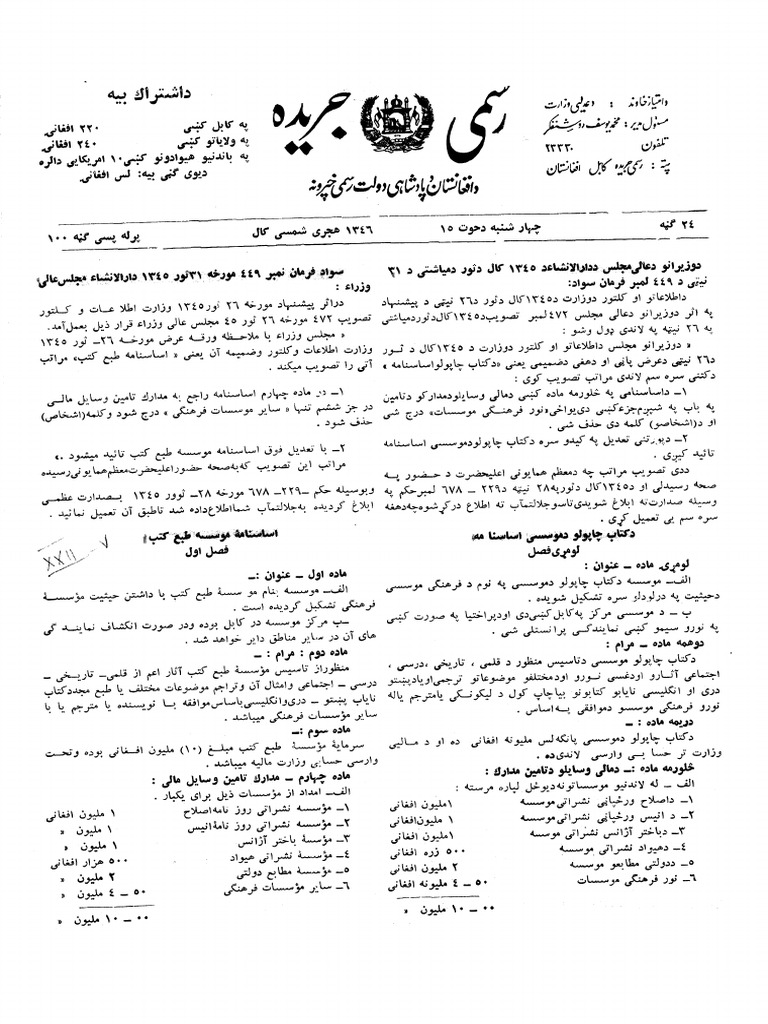 رسمی جریده
دافغانستان دپادشاهی دولت رسمی خپرونه
دامتیاز خاوند : دعدلیې وزارت
مسئول مدیر : محمدیوسف روشنفکر
تلفون ۲۳۳۳۰
پته : رسمی جریده کابل افغانستان
داشتراك بیه
په کابل کښی ۲۲۰ افغانی
په ولایاتو کښی ۲۴۰ افغانی
په باندنیو هیوادونو کښی ۱۰ امریکایی دالره
دیوی گڼی بیه: لس افغانی
۲۴ گڼه
چهار شنبه دحوت ۱۵
۱۳۴۶ هجری شمسی کال
پرله پسی گڼه ۱۰۰
دوزیرانو دعالی مجلس ددارالانشاءد ۱۳۴۵ کال دثور دمیاشتی د ۳۱
نیټی د ۴۴۹ لمبر فرمان سواد:
داطلاعاتو او کلتور دوزارت د۱۳۴۵ کال دثور د۲۶ نیټی د پیشنهاد
په اثر دوزیرانو دعالی مجلس ۴۷۲ لمبر تصویب د۱۳۴۵کال دثوردمیاشتی
په ۲۶ نیټه په لاندی ډول وشو :
« دوزیرانو مجلس داطلاعاتو او کلتور دوزارت د ۱۳۴۵ کال د ثور
د۲۶ نیټی دعرض پاڼی او دهغی دضمیمی یعنی «دکتاب چاپولواساسنامه »
دکتنی سره سم لاندی مراتب تصویب کوی :
۱ـ داساسنامی په څلورمه ماده کښی دمالی وسایلودمدارکو دتامین
په باب په شپږم جزء کښی دی یواځی«نور فرهنگی موسسات» درج شی
او د(اشخاصو) کلمه دی حذف شی .
۲ـ دپورتنی تعدیل په کیدو سره دکتاب چاپولودموسسی اساسنامه
تائید کیږی .
ددی تصویب مراتب چه دمعظم همایونی اعلیحضرت د حضور په
صحه رسیدلی او د۱۳۴۵ کال دثورپه ۲۸ نیټه د۲۲۹ ـ ۶۷۸ لمبرحکم په
وسیله صدارت ته ابلاغ شویدی تاسوجلالتمآب ته اطلاع درکړشوه چه دهغه
سره سم یی تعمیل کړی .
دکتاب چاپولو دموسسی اساسنامه
لومړی فصل
لومړی ماده ـ عنوان :ـ
الف ـ موسسه دکتاب چاپولو دموسسی په نوم د فرهنگی موسسی
دحیثیت په درلودلو سره تشکیل شویده .
ب ـ د موسسی مرکز په کابل کښی دی اودپراختیا په صورت کښی
په نورو سیمو کښی نمایندگی پرانستلی شی .
دوهمه ماده ـ مرام :ـ
دکتاب چاپولو دموسسی دتاسیس منظور د قلمی ، تاریخی ، درسی ،
اجتماعی آثارو اودغسی نورو اودمختلفو موضوعاتو ترجمی اویادپښتو
دری او انگلیسی نایابو کتابونو بیاچاپ کول د لیکونکی یامترجم یاله
نورو فرهنگی موسسو دموافقی په اساس .
دریمه ماده : ـ
دکتاب چاپولو دموسسی پانگه لس ملیونه افغانی ده او د مالیی
وزارت تر حسابی وارسی لاندی ده .
څلورمه ماده :ـ دمالی وسایلو دتامین مدارك :
الف ـ له لاندنیو موسساتونه دیوځل لپاره مرسته :
۱ـ داصلاح ورځپاڼی نشراتی موسسه ۱ ملیون افغانی
۲ـ د انیس ورځپاڼی نشراتی موسسه ۱ ملیون افغانی
۳ـ دباختر آژانس نشراتی موسسه ۱ ملیون افغانی
۴ـ دهیواد نشراتی موسسه ۵۰۰ زره افغانی
۵ـ ددولتی مطابعو موسسه ۲ ملیون افغانی
۶ـ نور فرهنگی موسسات ۵۰ ـ ۴ ملیونه افغانی
۰۰ ـ ۱۰ ملیون »
سواد فرمان نمبر ۴۴۹ مورخه ۳۱ ثور ۱۳۴۵ دارالانشاء مجلس عالی
وزراء :
دراثر پیشنهاد مورخه ۲۶ ثور۱۳۴۵ وزارت اطلاعات و کلتور
تصویب ۴۷۲ مورخه ۲۶ ثور ۴۵ مجلس عالی وزراء قرار ذیل بعمل آمد.
« مجلس وزراء با ملاحظه ورقه عرض مورخه ۲۶ ـ ثور ۱۳۴۵
وزارت اطلاعات وکلتور وضمیمه آن یعنی « اساسنامه طبع کتب» مراتب
آتی را تصویب میکند .
۱ـ در ماده چهارم اساسنامه راجع به مدارك تامین وسایل مالی
در جز ششم تنها « سایر موسسات فرهنگی » درج شود وکلمه(اشخاص)
حذف شود .
۲ـ با تعدیل فوق اساسنامه موسسه طبع کتب تائید میشود .»
مراتب این تصویب که به صحه حضور اعلیحضرت معظم همایونی رسیده
وبوسیله حکم ـ۲۲۹ـ ۶۷۸ مورخه ۲۸ـ ثوور ۱۳۴۵ بصدارت عظمی
ابلاغ گردیده به جلالتمآب شما اطلاع داده شد تاطبق آن تعمیل نمائید .
اساسنامهٔ موسسه طبع کتب
فصل اول
ماده اول ـ عنوان :ـ
الف ـ موسسه بنام موسسهٔ طبع کتب با داشتن حیثیت مؤسسهٔ
فرهنگی تشکیل گردیده است .
ـب ـ مرکز موسسه در کابل بوده ودر صورت انکشاف نمایندگی
های آن در سایر مناطق دایر خواهد شد .
ماده دوم : مرام : ـ
منظوراز تاسیس مؤسسهٔ طبع کتب آثار اعم از قلمی ـ تاریخی ـ
درسی ـ اجتماعی وامثال آن وتراجم موضوعات مختلف یا طبع مجددکتاب
نایاب پښتو ـ دری وانگلیسی باساس موافقه با نویسنده یا مترجم یا با
سایر مؤسسات فرهنگی میباشد .
ماده سوم :ـ
سرمایهٔ مؤسسهٔ طبع کتب مبلغ (۱۰) ملیون افغانی بوده وتحت
وارسی حسابی وزارت مالیه میباشد .
ماده چهارم ـ مدارك تامین وسایل مالی :
الف ـ امداد از مؤسسات ذیل برای یکبار .
۱ـ مؤسسه نشراتی روز نامه اصلاح ۱ ملیون افغانی
۲ـ مؤسسه نشراتی روز نامهٔ انیس ۱ ملیون »
۳ـ مؤسسهٔ باختر آژانس ۱ ملیون »
۴ـ مؤسسهٔ نشراتی هیواد ۵۰۰ هزار افغانی
۵ـ مؤسسهٔ مطابع دولتی ۲ ملیون »
۶ـ سایر مؤسسات فرهنگی ۵۰ ـ ۴ ملیون »
۰۰ ـ ۱۰ ملیون »
XXII
۷